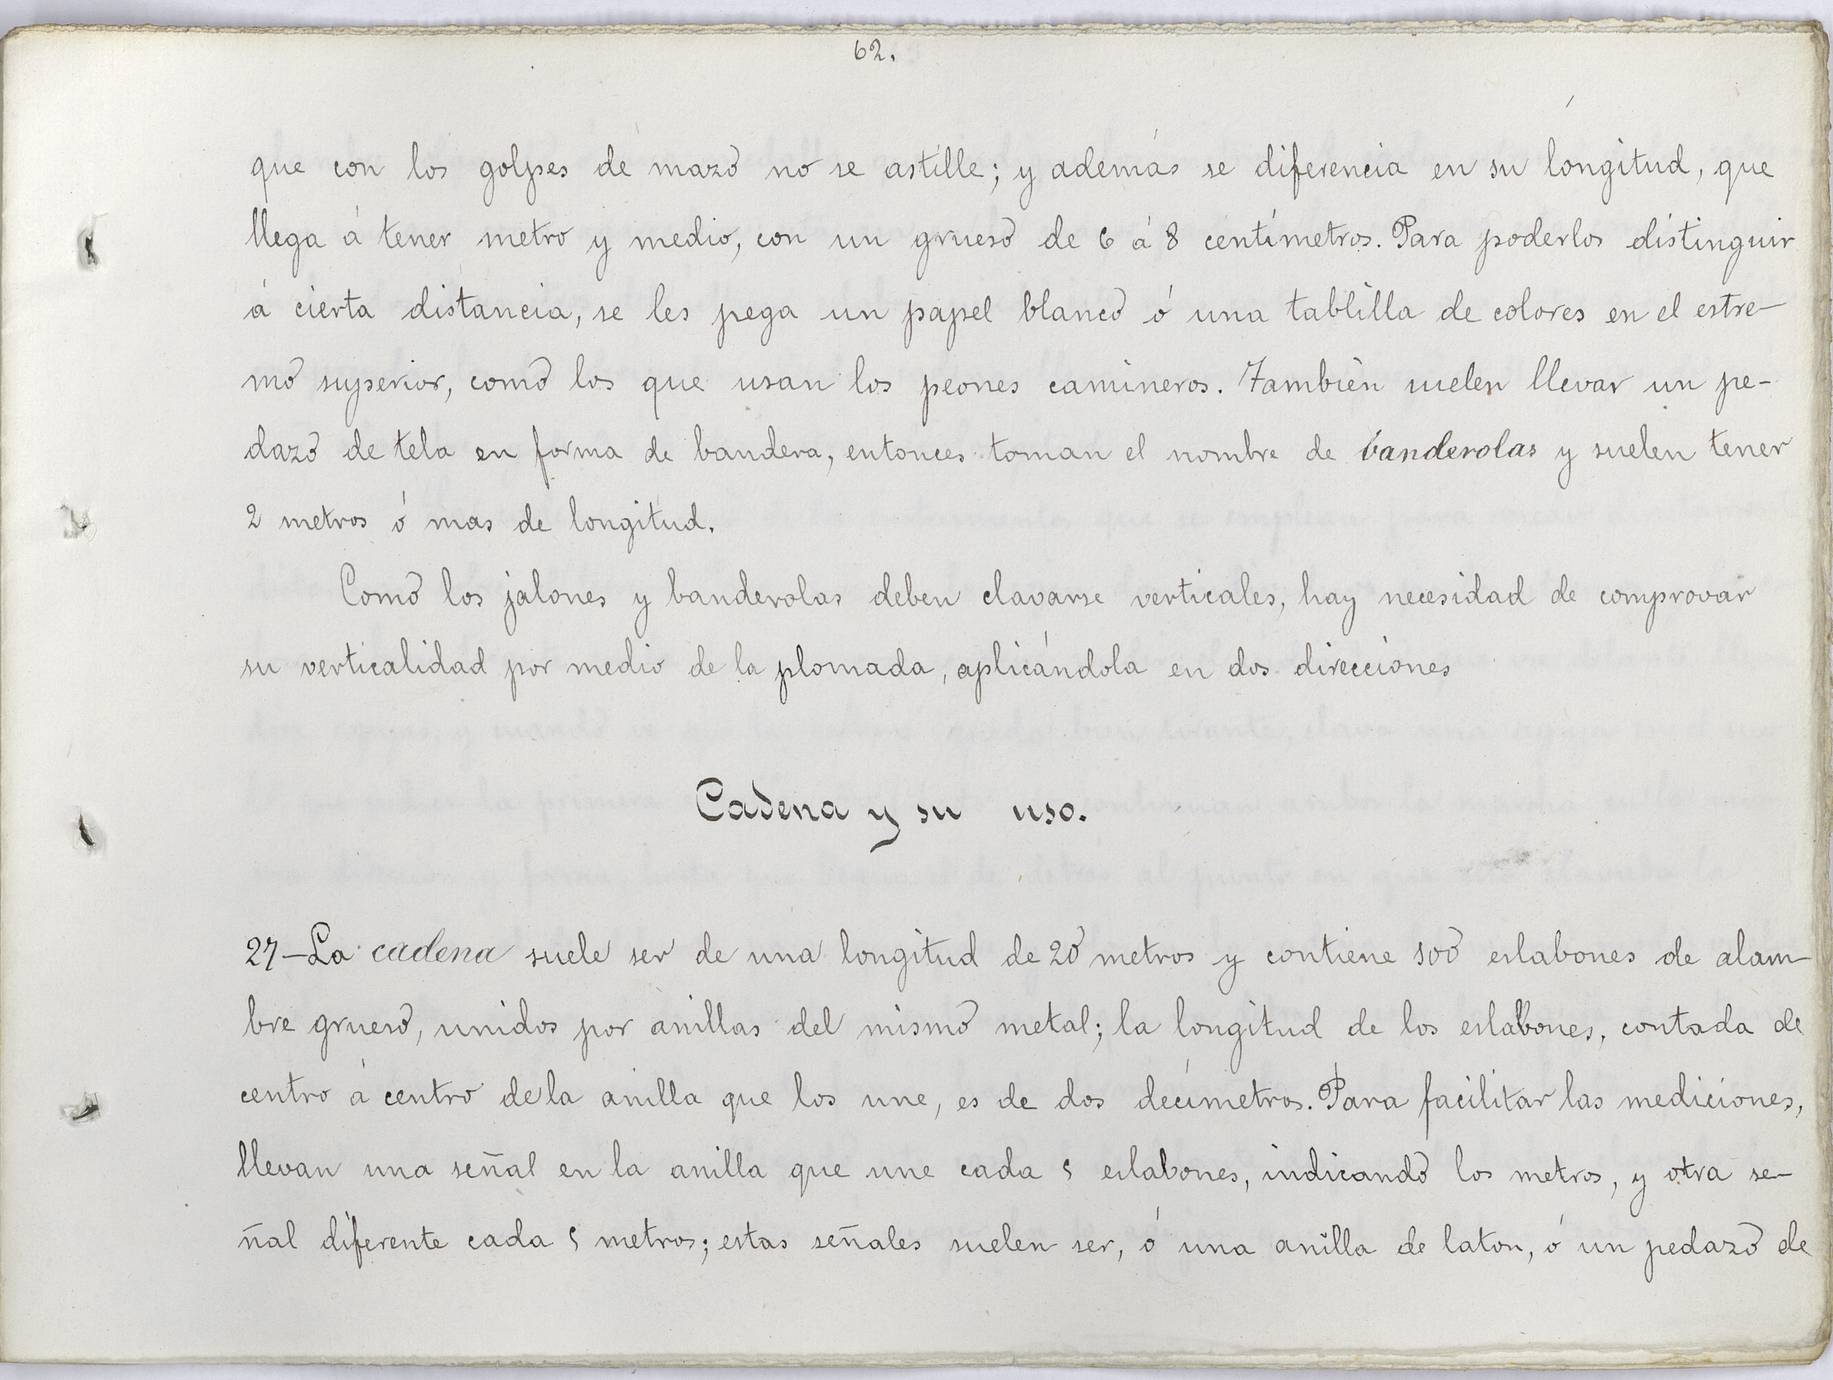 62.
que con los golpes de mazo no se astille; y además se diferencia en su longitud, que
llega á tener metro y medio, con un grueso de 6 á 8 centímetros. Para poderlos distinguir
á cierta distancia, se les pega un papel blanco ó una tablilla de colores en el estre-
mo superior, como los que usan los peones camineros. También suelen llevar un pe-
dazo de tela en forma de bandera, entonces toman el nombre de banderolas y suelen tener
2 metros ó mas de longitud.
Como los jalones y banderolas deben clavarse verticales, hay necesidad de comprovar
su verticalidad por medio de la plomada, aplicándola en dos direcciones
Cadena y su uso.
27-La cadena suele ser de una longitud de 20 metros y contiene 100 eslabones de alam-
bre grueso, unidos por anillas del mismo metal; la longitud de los eslabones, contada de
centro á centro de la anilla que los une, es de dos decímetros. Para facilitar las mediciones,
llevan una señal en la anilla que une cada 5 eslabones, indicando los metros, y otra se-
ñal diferente cada 5 metros; estas señales suelen ser, ó una anilla de laton, ó un pedazo de